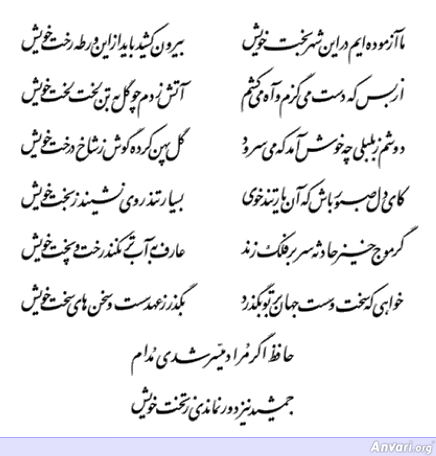 ما آزموده ایم در این شهر بخت خویش
بیرون کشید باید از این ورطه رخت خویش
از بس که دست می گزم و آه می کشم
آتش زدم چو گل به تن لخت لخت خویش
دوشم ز بلبلی چه خوش آمد که می سرود
گل پهن کرده گوش ز شاخ درخت خویش
کای دل صبور باش که آن یار تندخوی
بسیار تندروی نشیند ز بخت خویش
گر موج خیز حادثه سر بر فلک زند
عارف به آب تر نکند رخت و پخت خویش
خواهی که سخت و سست جهان بر تو بگذرد
بگذر ز عهد سست و سخن های سخت خویش
حافظ اگر مراد میسر شدی مدام
جمشید نیز دور نماندی ز تخت خویش
Anvari.org